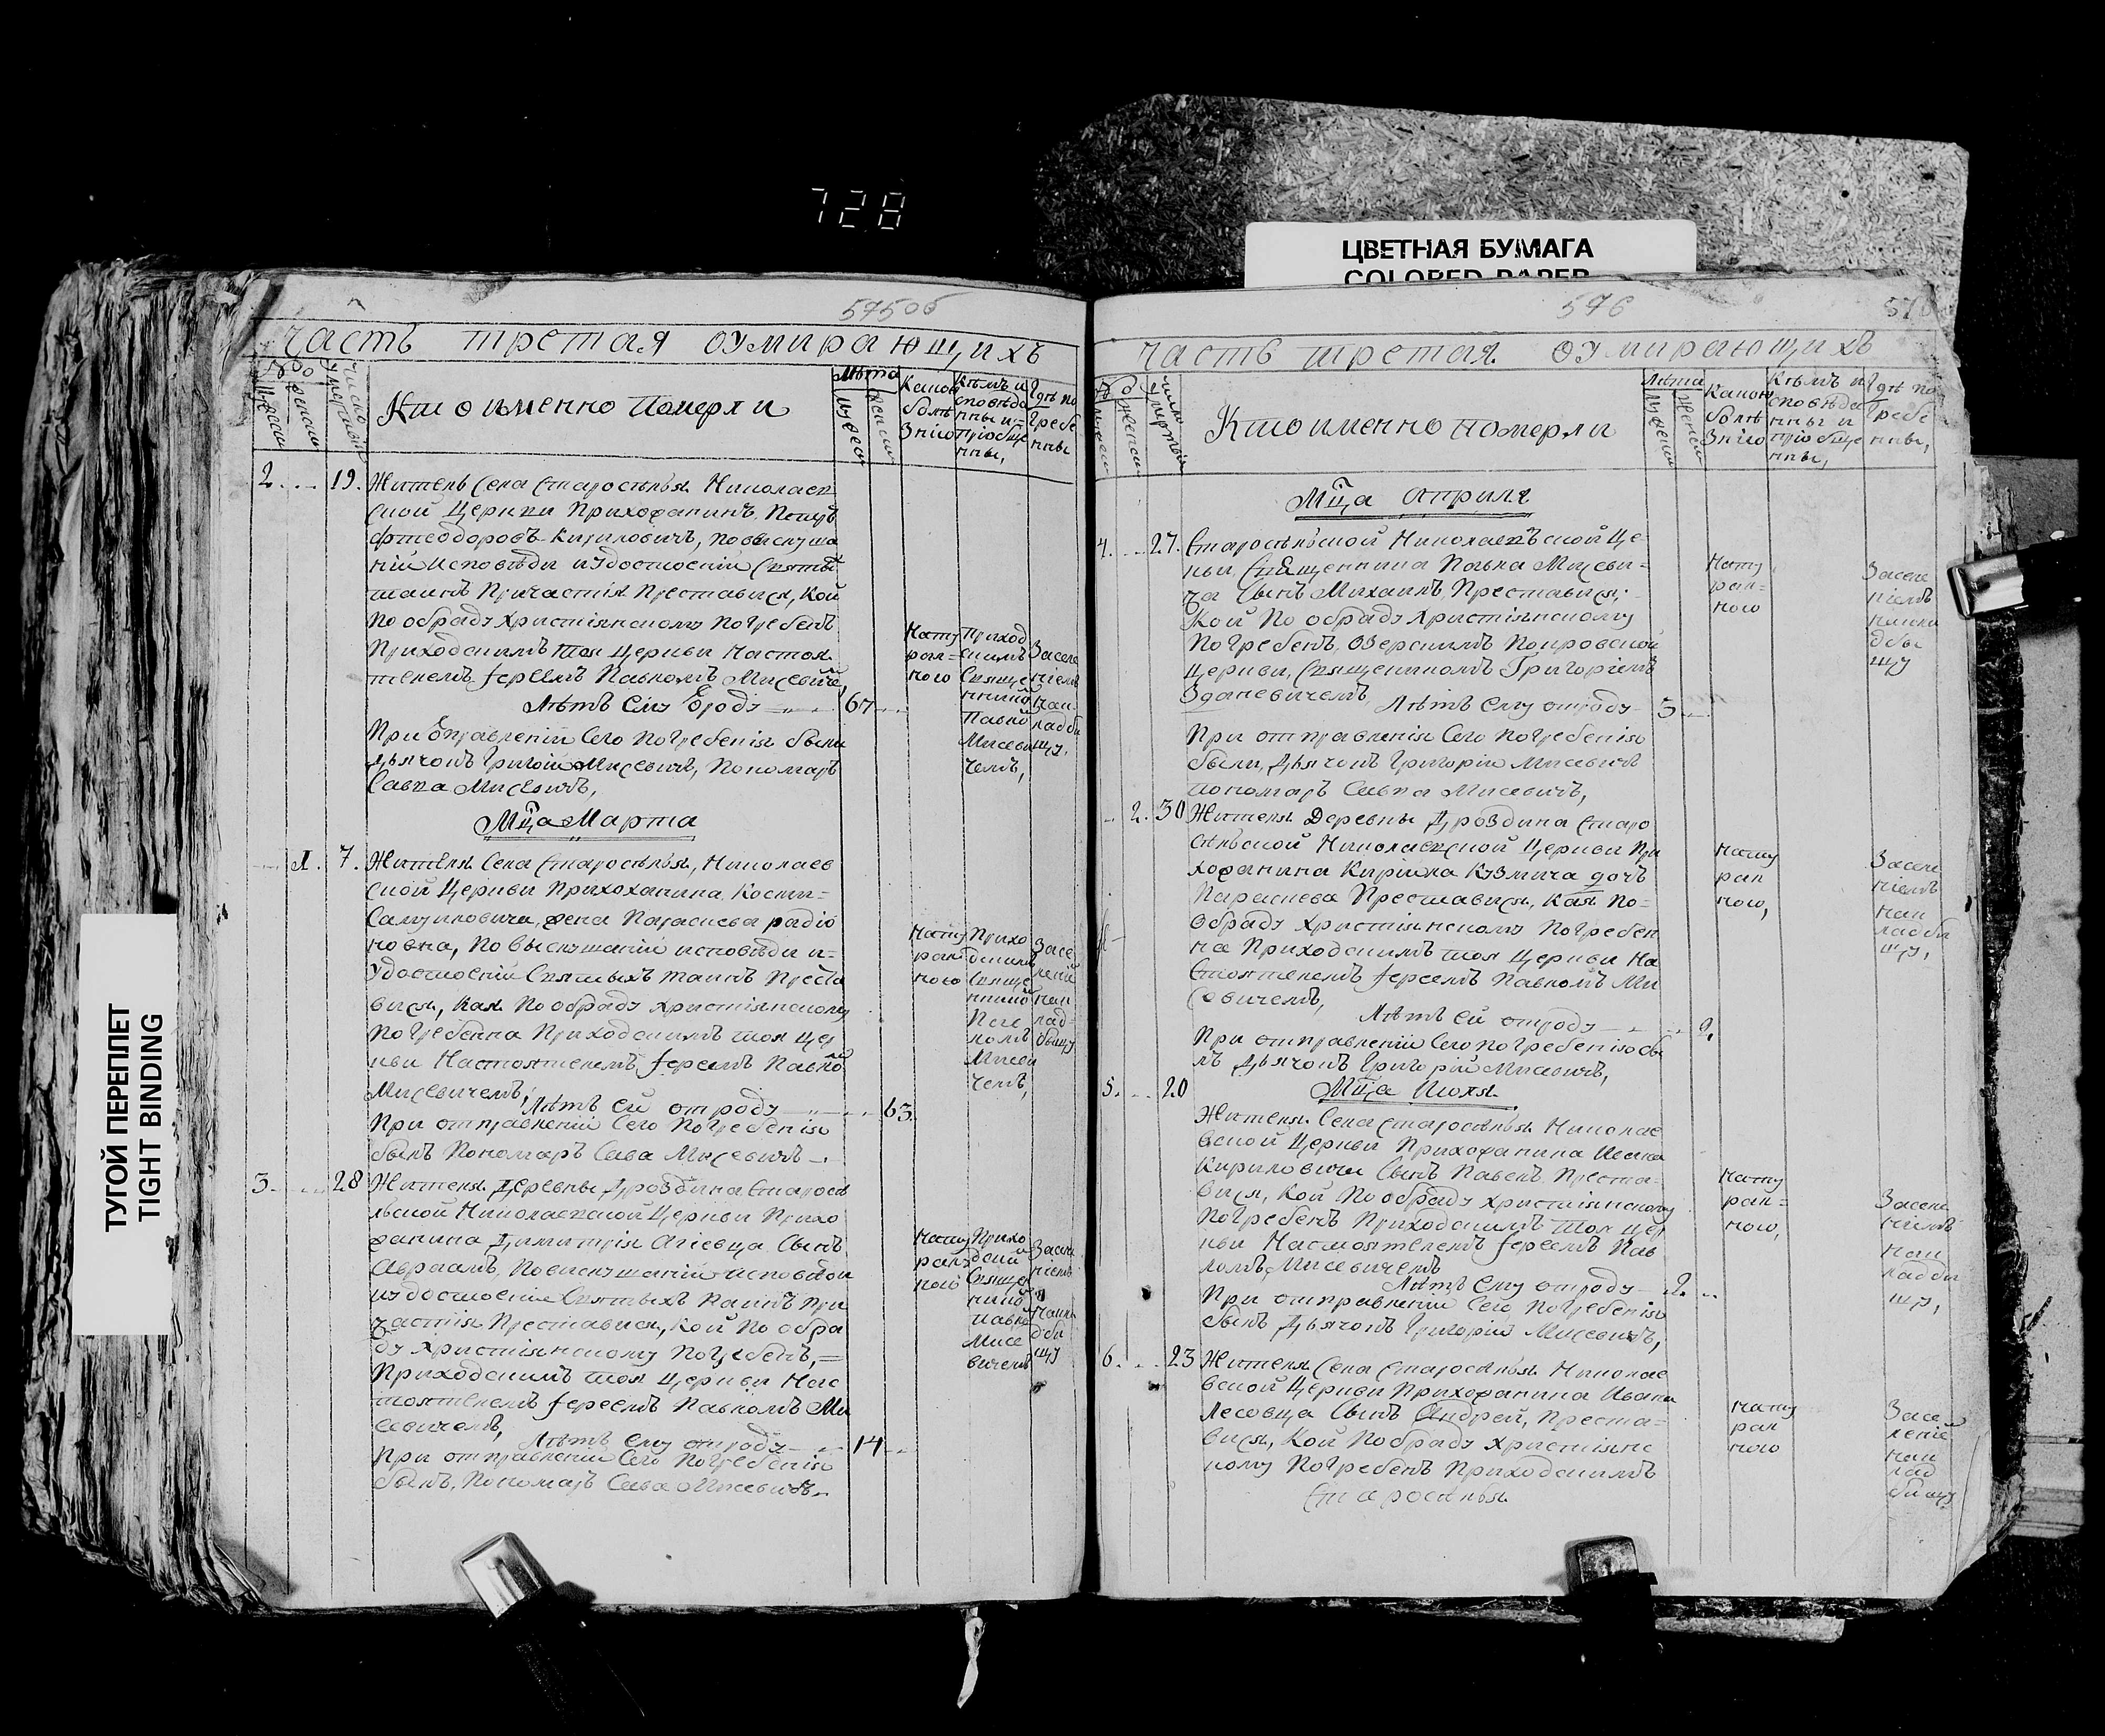 728
ЦВЕТНАЯ БУМАГА
COLORED PAPER
ТУГОЙ ПЕРЕПЛЕТ
TIGHT BINDING
575об
часть третая оумирающихъ
Число умертвій
Кто именно померли
Лѣта
Какою болѣзнію
Кѣмъ исповѣданны и пріобщенны,
Гдѣ погребенны
2. 19. Житель Села Старосѣлья Николаев
ской Церкви Прихожанинъ Петръ
Фтеодоровъ Кириловичъ, по выслуша
ніи исповѣди и удостоеніи Святы
таинъ Причастія Преставися, Кой
По обряду Христіянскому Погребенъ
Приходскимъ тоя Церкви Настоя
телемъ Іереемъ Павломъ Мисевиче,
Лѣтъ Ему Ѿроду 67
При Ѿправленіи Сего Погребенія были
Дьячокъ Григоій Мисевичъ, Пономаръ
Савва Мисевичъ,
Нату
рал=
ною
Приход
скимъ
Свяще
нико
Павло
Мисеви
чемъ,
Заселе
ніемъ
на к
ладби
щу,
Мца Марта
1. 7. Жителя Села Старосѣлья, Николаев
ской Церкви Прихожанина Кости=
Самуиловича, жена Параскева радіо
новна, По выслушаніи исповѣди и=
Удостоеніи Святыхъ таинъ Преста
вися, Кая По обряду Христіянскому
Погребенна Приходскимъ тоя Цер
кви Настоятелемъ Іереемъ Павло
Мисевичемъ,
Лѣтъ Ей отроду 63.
При отправленіи Сего Погребенія
былъ Пономаръ Сава Мисевичъ
Нату
рал
ною
3. 28 Жителя Деревны Дроздина Старосѣ
льской Николаевской Церкви Прихо
жанина Димитрія Агіевца Сынъ
Авраамъ, По выслушаніи исповѣди
и удостоеніи Святыхъ Таинъ При
частія Преставися, Кой По обря
ду Христіянскому Погребенъ,=
Приходскимъ тоя Церкви Нас
тоятелемъ Іереемъ Павломъ Ми
севичемъ,
Лѣтъ Ему отроду 14
При отправленіи Сего Погребенія
былъ, Пономаръ Сава Мисевичъ
Нату
рал
ною
576
часть третая оумирающихъ
Кто именно померли
Лѣта
Какою болѣзніо
Кѣмъ исповѣданны и пріобщенны,
Гдѣ погребенны,
Мца Априля
4. 27. Старосѣльской Николаевской Це
кви, Священника Павла Мисеви=
ча Сынъ Михаилъ, Преставися,
Кой По обряду Христіянскому
Погребенъ, Озерскимъ Покровской
Церкви, Священикомъ Григоріемъ
Зданевичемъ, Лѣтъ Ему отроду 3
При отправленія Сего Погребенія
были, Дьячокъ Григорій Мисевичъ
пономаръ Савва Мисевичъ,
Нату
рал=
ною
Заселе
ніемъ
на кла
дби
щу
2. 30 Жителя Деревны Дроздина Старо
сѣльской Николаевской Церкви При
хожанина Кирійка Кузмича дочъ
Параскева Преставися, Кая По=
Обряду Христіянскому Погребен
на Приходскимъ тоя Церкви На
стоятелемъ Іереемъ Павломъ Ми
севичемъ,
Лѣтъ ей отроду 2.
При отправленіи Сего погребенія бы
лъ Дьячокъ Григорій Мисевичъ,
Нату
рал
ною,
Заселе
ніемъ
на к
ладби
щу,
Мца Июля
5. 20
Жителя Села Старосѣлья Николае
вской Церкви Прихожанина Ивана
Кириловича Сынъ Павелъ Преста=
вися, Кой По обряду Христіянскому
Погребенъ Приходскимъ тоя Цер
кви Настоятелемъ Іереемъ Пав
ломъ Мисевичемъ
Лѣтъ Ему отроду 2.
При отправленіи Сего Погребенія
былъ Дьячокъ Григорій Мисевичъ,
Нату
рал=
ною,
Заселе
ніемъ
на к
ладби
щу,
6. 23 Жителя Села Старосѣлья Николае
вской Церкви Прихожанина Ивана
Лесовца Сынъ Андрей, Преста=
вися, Кой По обряду Христіянс
кому Погребенъ Приходскимъ
Старосѣлья
Нату
рал
ною
Засе
леніе
на к
лад
бищу